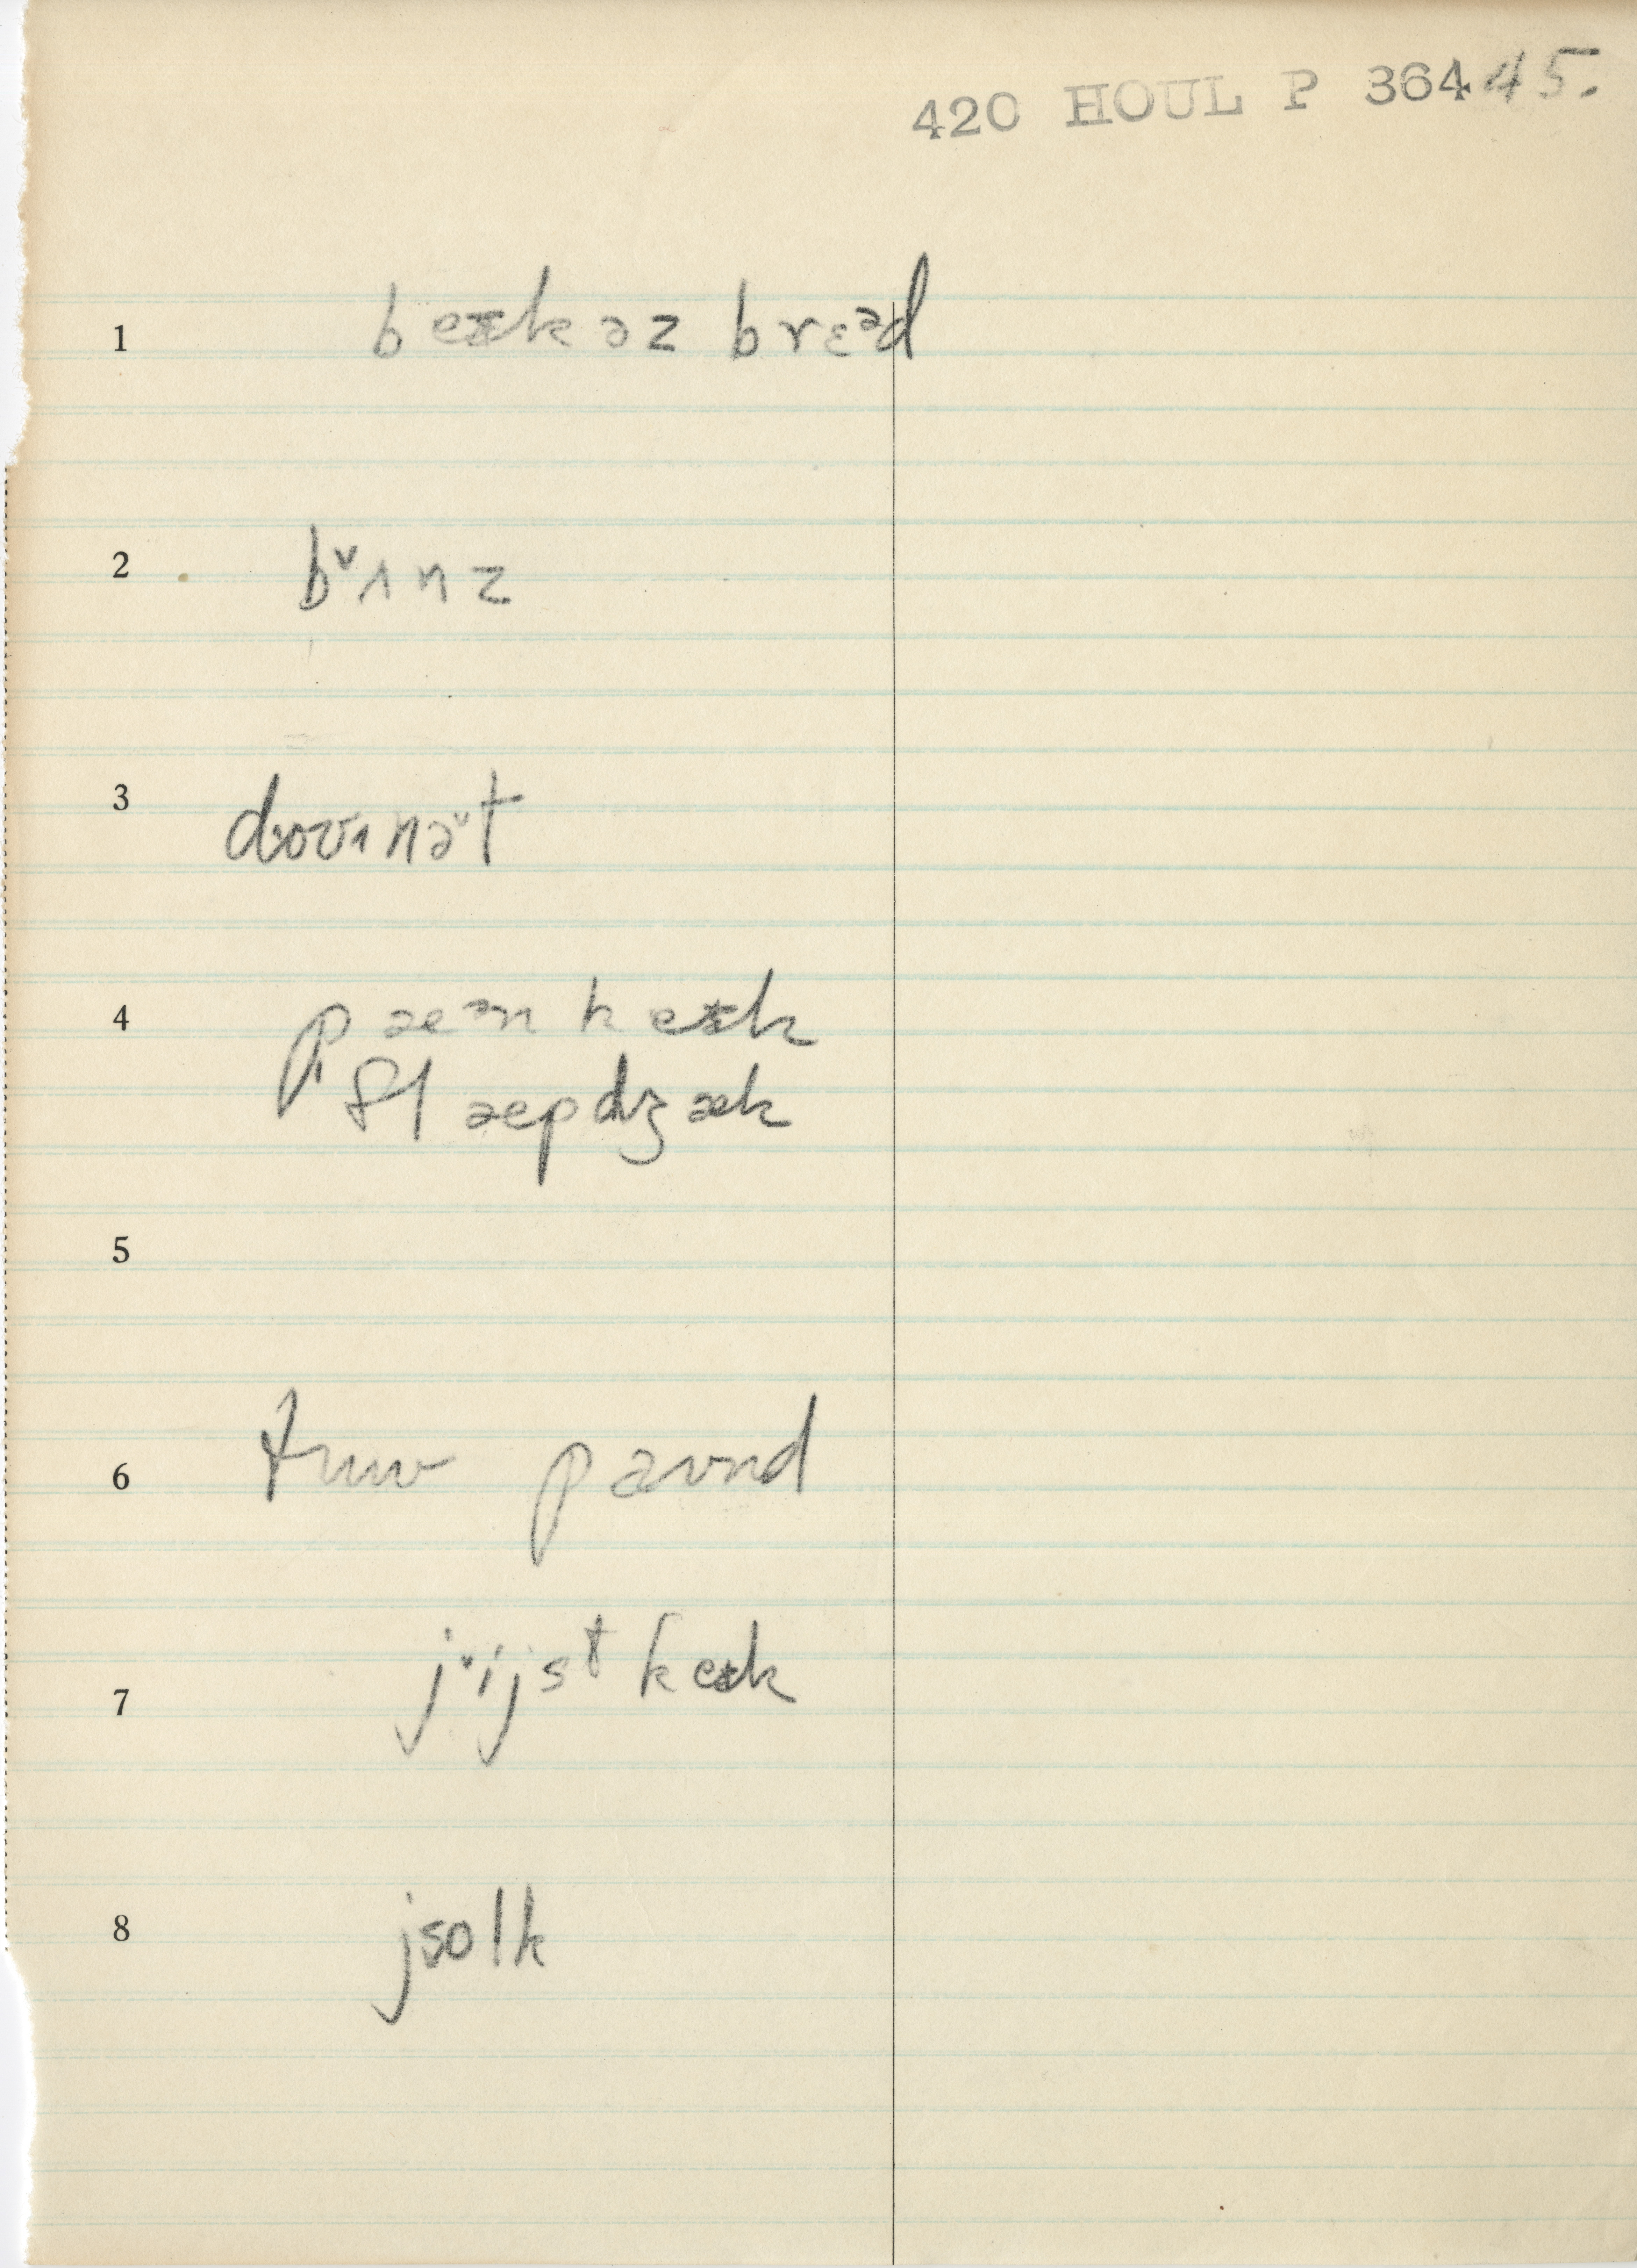 420 HOUL P 364 45.
1 beɪkəz brɛᵊd
2 bᵛʌnz
3 doʊnəᵛt
4 pæᵊn keɪk
flæpdʒæk
5
6 tuu paʊnd
7 jᵛijst keɪk
8 jsolk